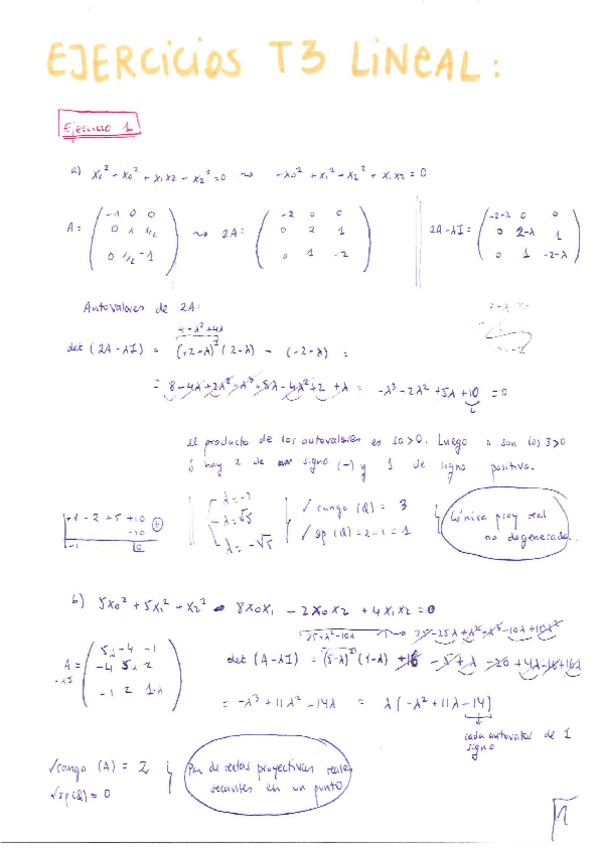 EJERCICIOS T3 LINEAL:
Ejercicio 1
a) x₁² - x₀² + x₁x₂ - x₂² = 0 ⇝ -x₀² + x₁² - x₂² + x₁x₂ = 0
A = ( -1 0 0 / 0 1 1/2 / 0 1/2 -1 ) ⇝ 2A: ( -2 0 0 / 0 2 1 / 0 1 -2 ) 2A-λI = ( -2-λ 0 0 / 0 2-λ 1 / 0 1 -2-λ )
Autovalores de 2A:
det (2A-λI) = (-2-λ)² (2-λ) - (-2-λ) =
= 8-4λ+2λ²-λ³+8λ-4λ²+2+λ = -λ³-2λ²+5λ+10 = 0
el producto de los autovalores es 10>0. Luego o son los 3>0
ó hay 2 de signo (-) y 1 de signo positivo.
-1 -2 +5 +10
-10
-1 0
λ=-2
λ=√5
λ=-√5
✓ rango (Q) = 3
✓ sp (Q) = 2-1 = 1
Cónica proy real
no degenerada.
b) 5x₀² + 5x₁² - x₂² - 8x₀x₁ - 2x₀x₂ + 4x₁x₂ = 0
25+λ²-10λ → 25-25λ+λ²-λ³-10λ+10λ²
A-λI = ( 5-λ -4 -1 / -4 5-λ 2 / -1 2 1-λ ) det (A-λI) = (5-λ)² (1-λ) +16 -5+λ -20+4λ-16+16λ
= -λ³+11λ²-14λ = λ(-λ²+11λ-14)
cada autovalor de 1
signo
✓rango (A) = 2
✓sp(Q) = 0
Par de rectas proyectivas reales
secantes en un punto
1